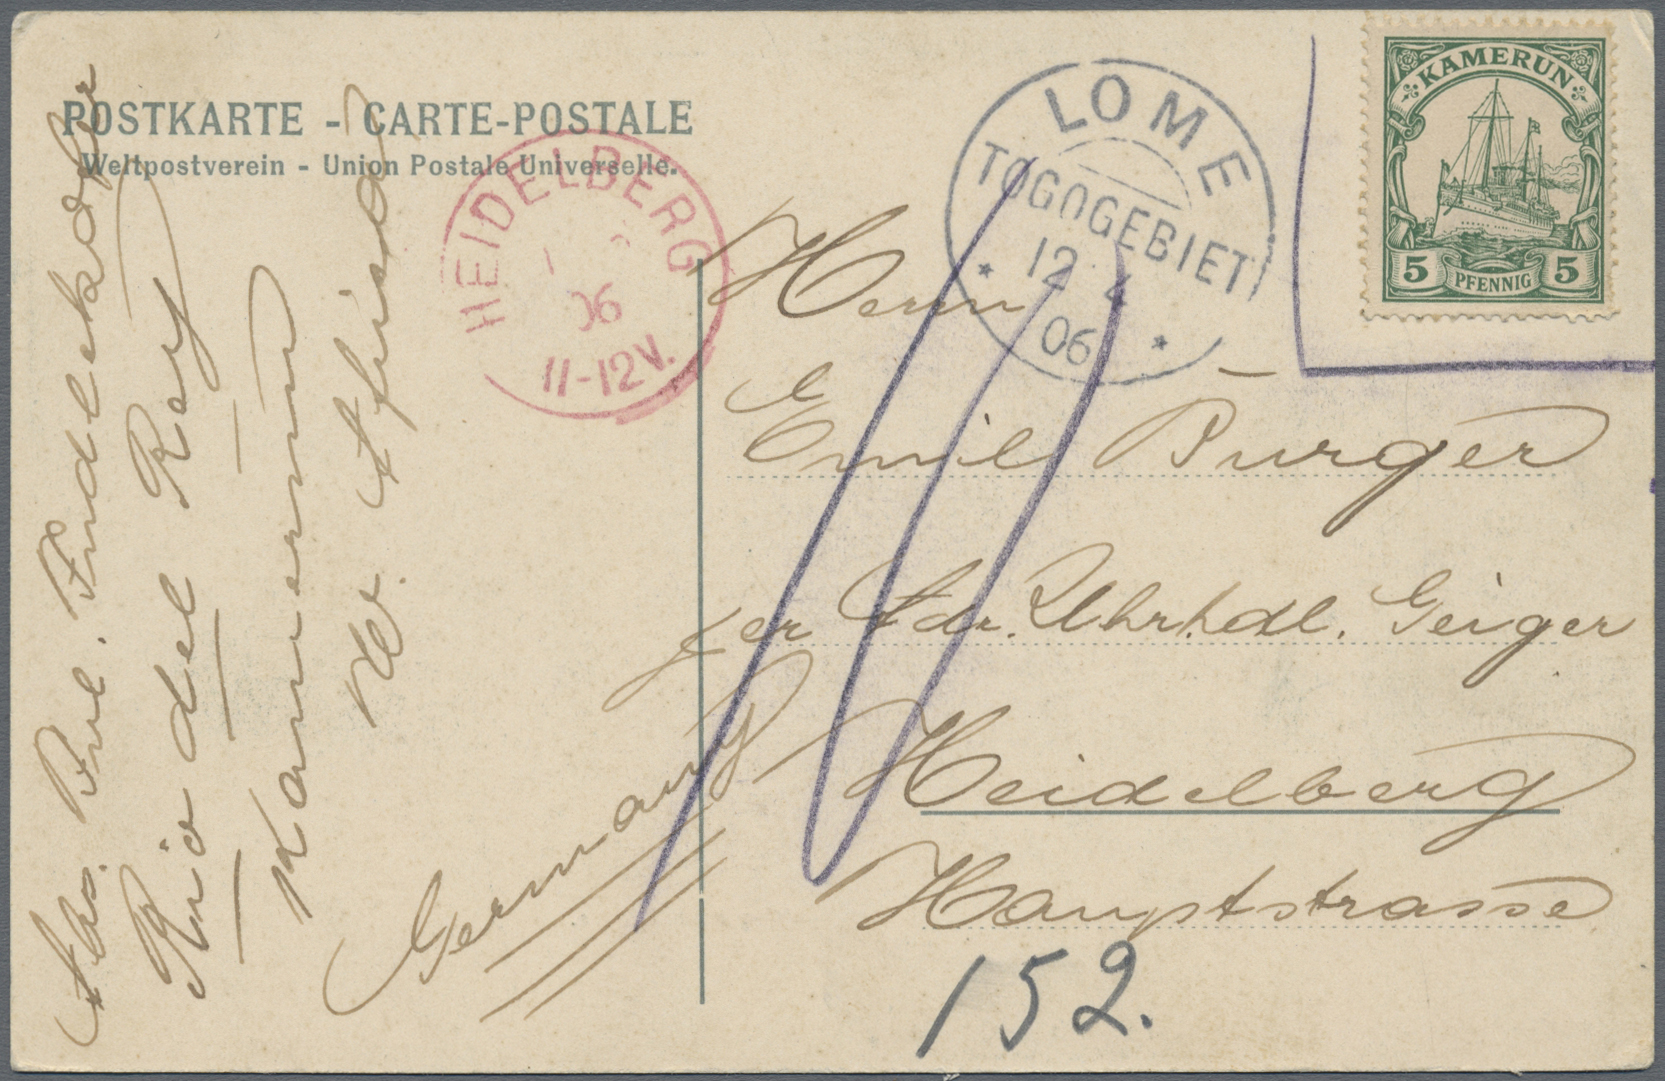 POSTKARTE - CARTE-POSTALE
Weltpostverein - Union Postale Universelle.
HEIDELBERG
06
11-12V.
LOME
TOGOGEBIET
12 4
06
KAMERUN
5 PFENNIG 5
Herrn
Emil Burger
per Adr. Uhrhdl. Geiger
Heidelberg
Hauptstrasse
152.
Germany
Abs. Findlekofer
Rio del Rey
Kamerun
W. Afrika
10